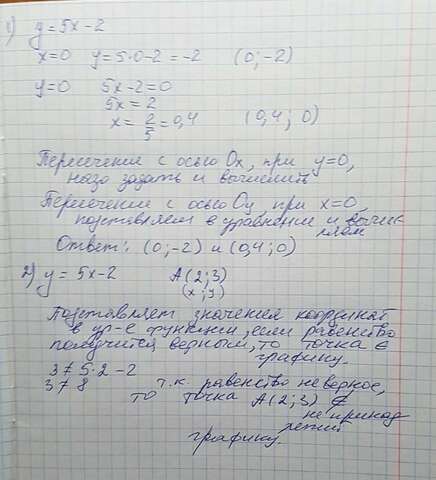 1) y=5x-2
x=0 y=5·0-2=-2 (0;-2)
y=0 5x-2=0
5x=2
x=2/5=0,4 (0,4; 0)
Пересечение с осью Ox, при y=0,
надо задать и вычислить
Пересечение с осью Oy при x=0,
подставляем в уравнение и вычис
ляем
Ответ: (0;-2) и (0,4;0)
2) y=5x-2 A(2;3)
(x;y)
Подставляем значения координат
в ур-е функции, если равенство
получится верным, то точка ∈
графику.
3≠5·2-2
3≠8 т.к. равенство неверное,
то точка A(2;3) ∉
не принад
лежит
графику.